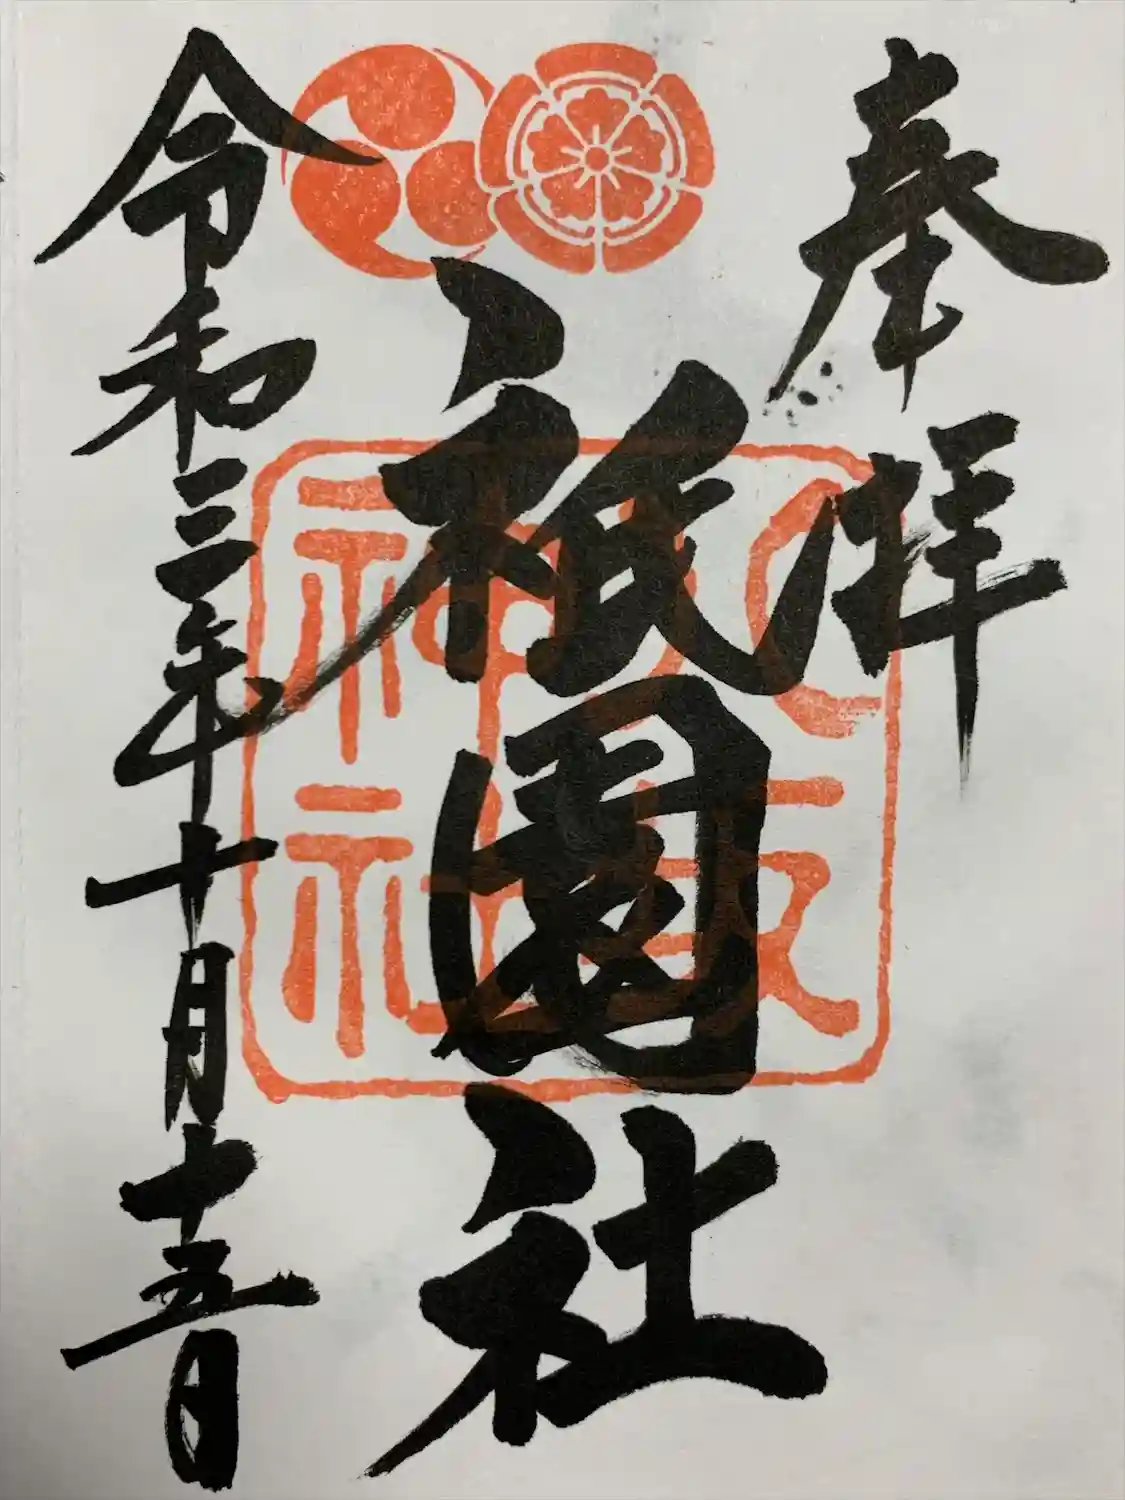 奉拝
祇園社
八坂
神社
令和三年十月十五日